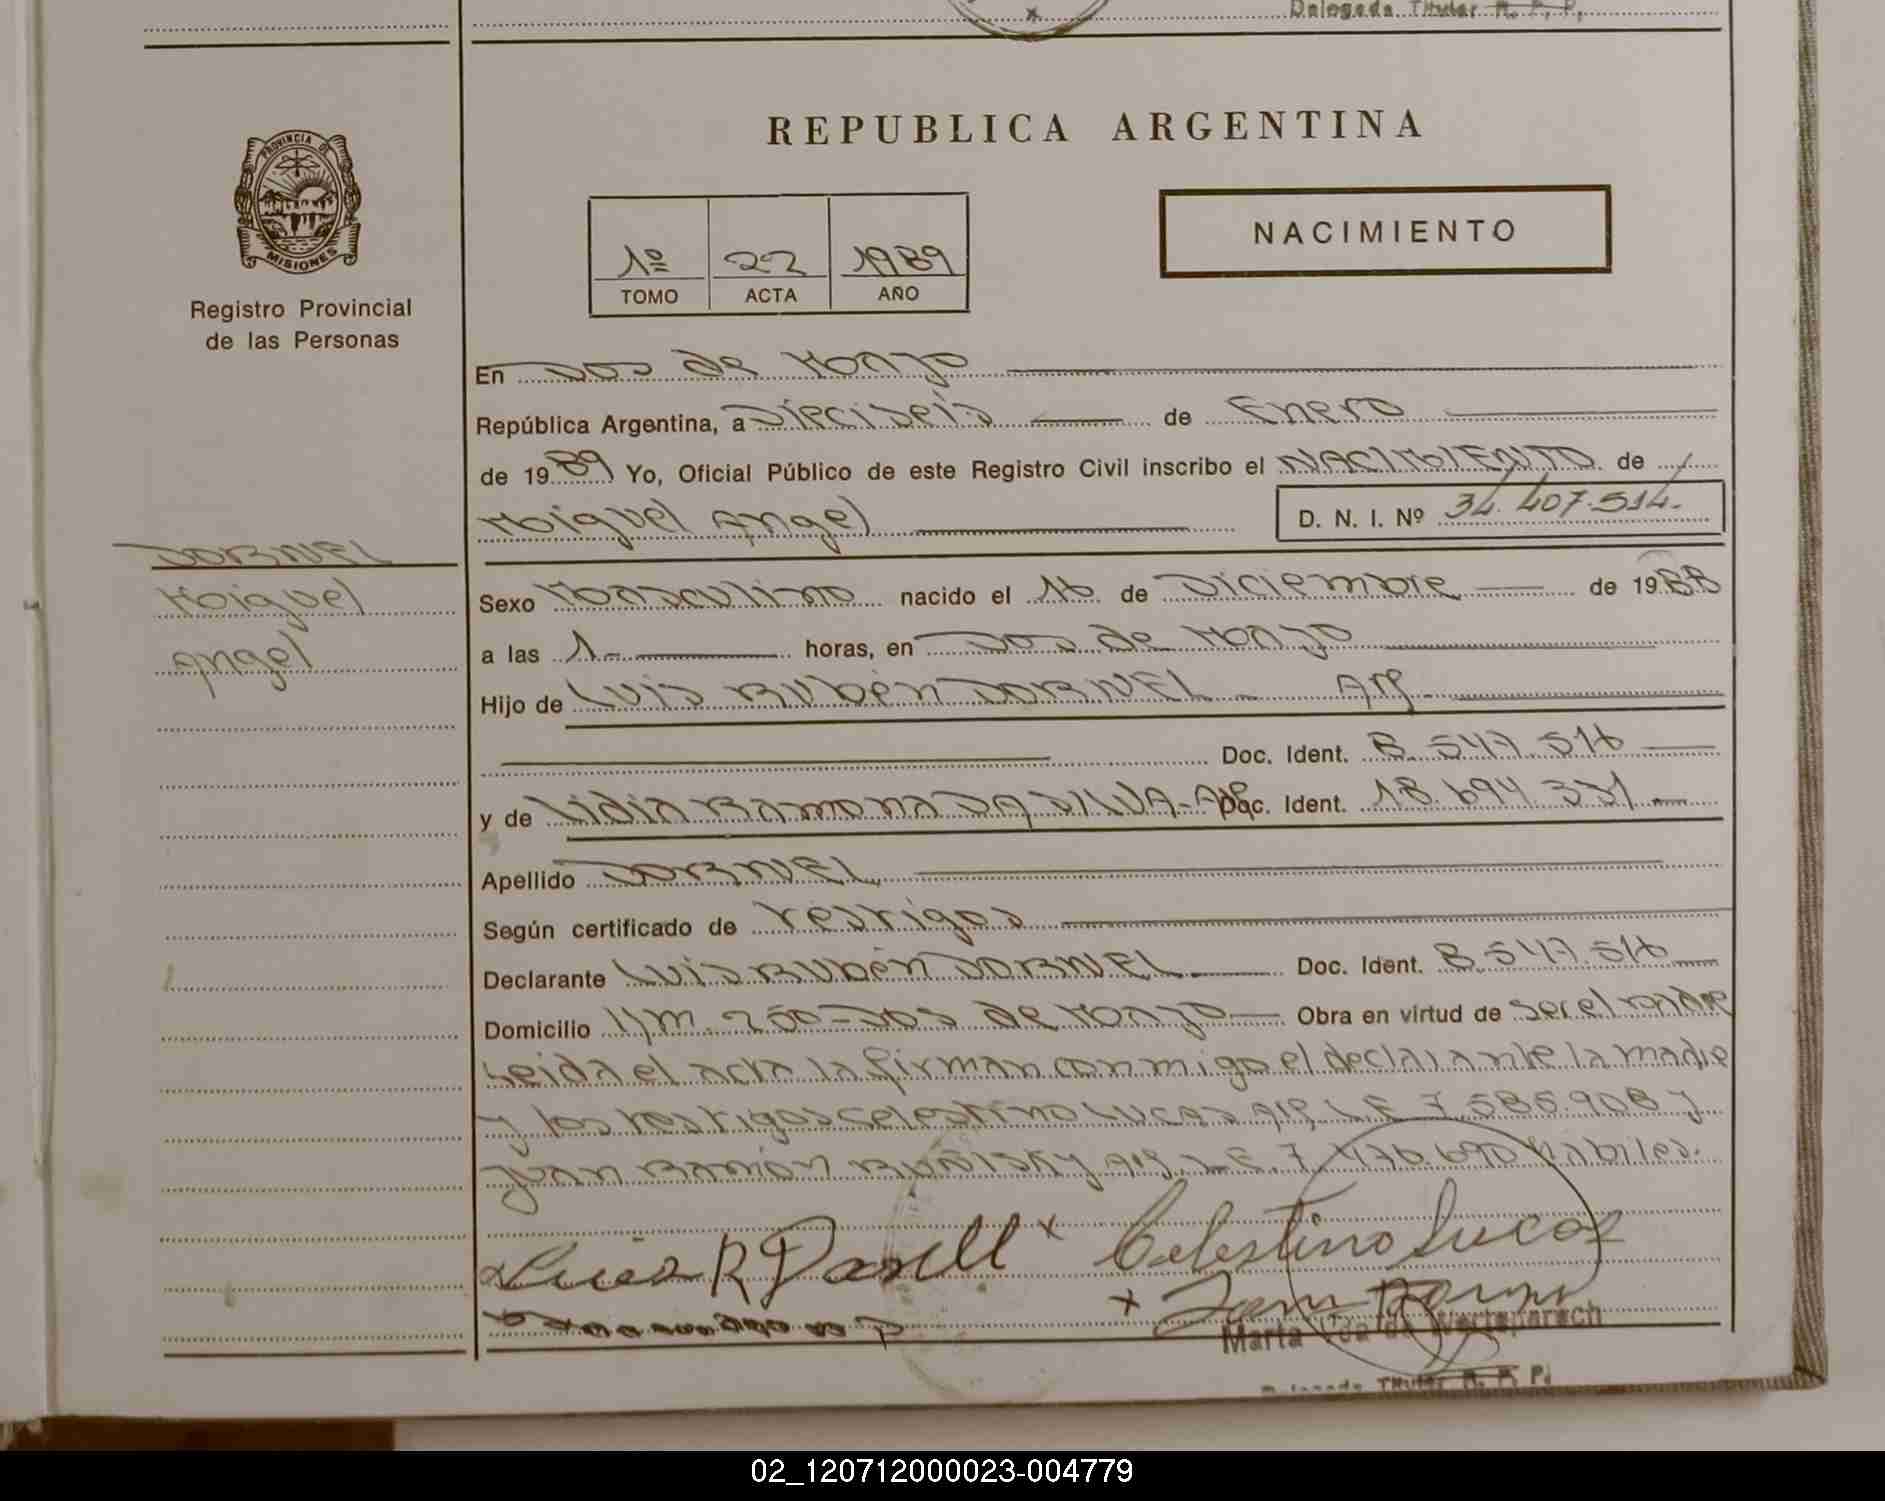 Delegada Titular R. P. P.
PROVINCIA DE
MISIONES
Registro Provincial
de las Personas
REPUBLICA ARGENTINA
NACIMIENTO
1º 22 1989
TOMO ACTA AÑO
En Dos de Mayo
República Argentina, a Dieciseis de Enero
de 1989 Yo, Oficial Público de este Registro Civil inscribo el NACIMIENTO de
Miguel Angel D. N. I. Nº 34.407.514.
DORNEL
Miguel
Angel
Sexo Masculino nacido el 16 de Diciembre de 1988
a las 1.- horas, en Dos de Mayo
Hijo de Luis Rubén DORNEL - Arg.
Doc. Ident. 8.547.516
y de Lidia Ramona DA SILVA - Arg. Doc. Ident. 18.694.331
Apellido DORNEL
Según certificado de testigos
Declarante Luis Rubén DORNEL Doc. Ident. 8.547.516
Domicilio Km. 250 - Dos de Mayo Obra en virtud de ser el padre
Leida el acta la firman conmigo el declarante la madre
y los testigos Celestino Lucas Arg. L.E. 7.585.908 y
Juan Ramón Arg. L.E. 7.476.690 hábiles.
Luis R Celestino Lucas
Marta de
Delegada Titular R. P. P.
02_120712000023-004779